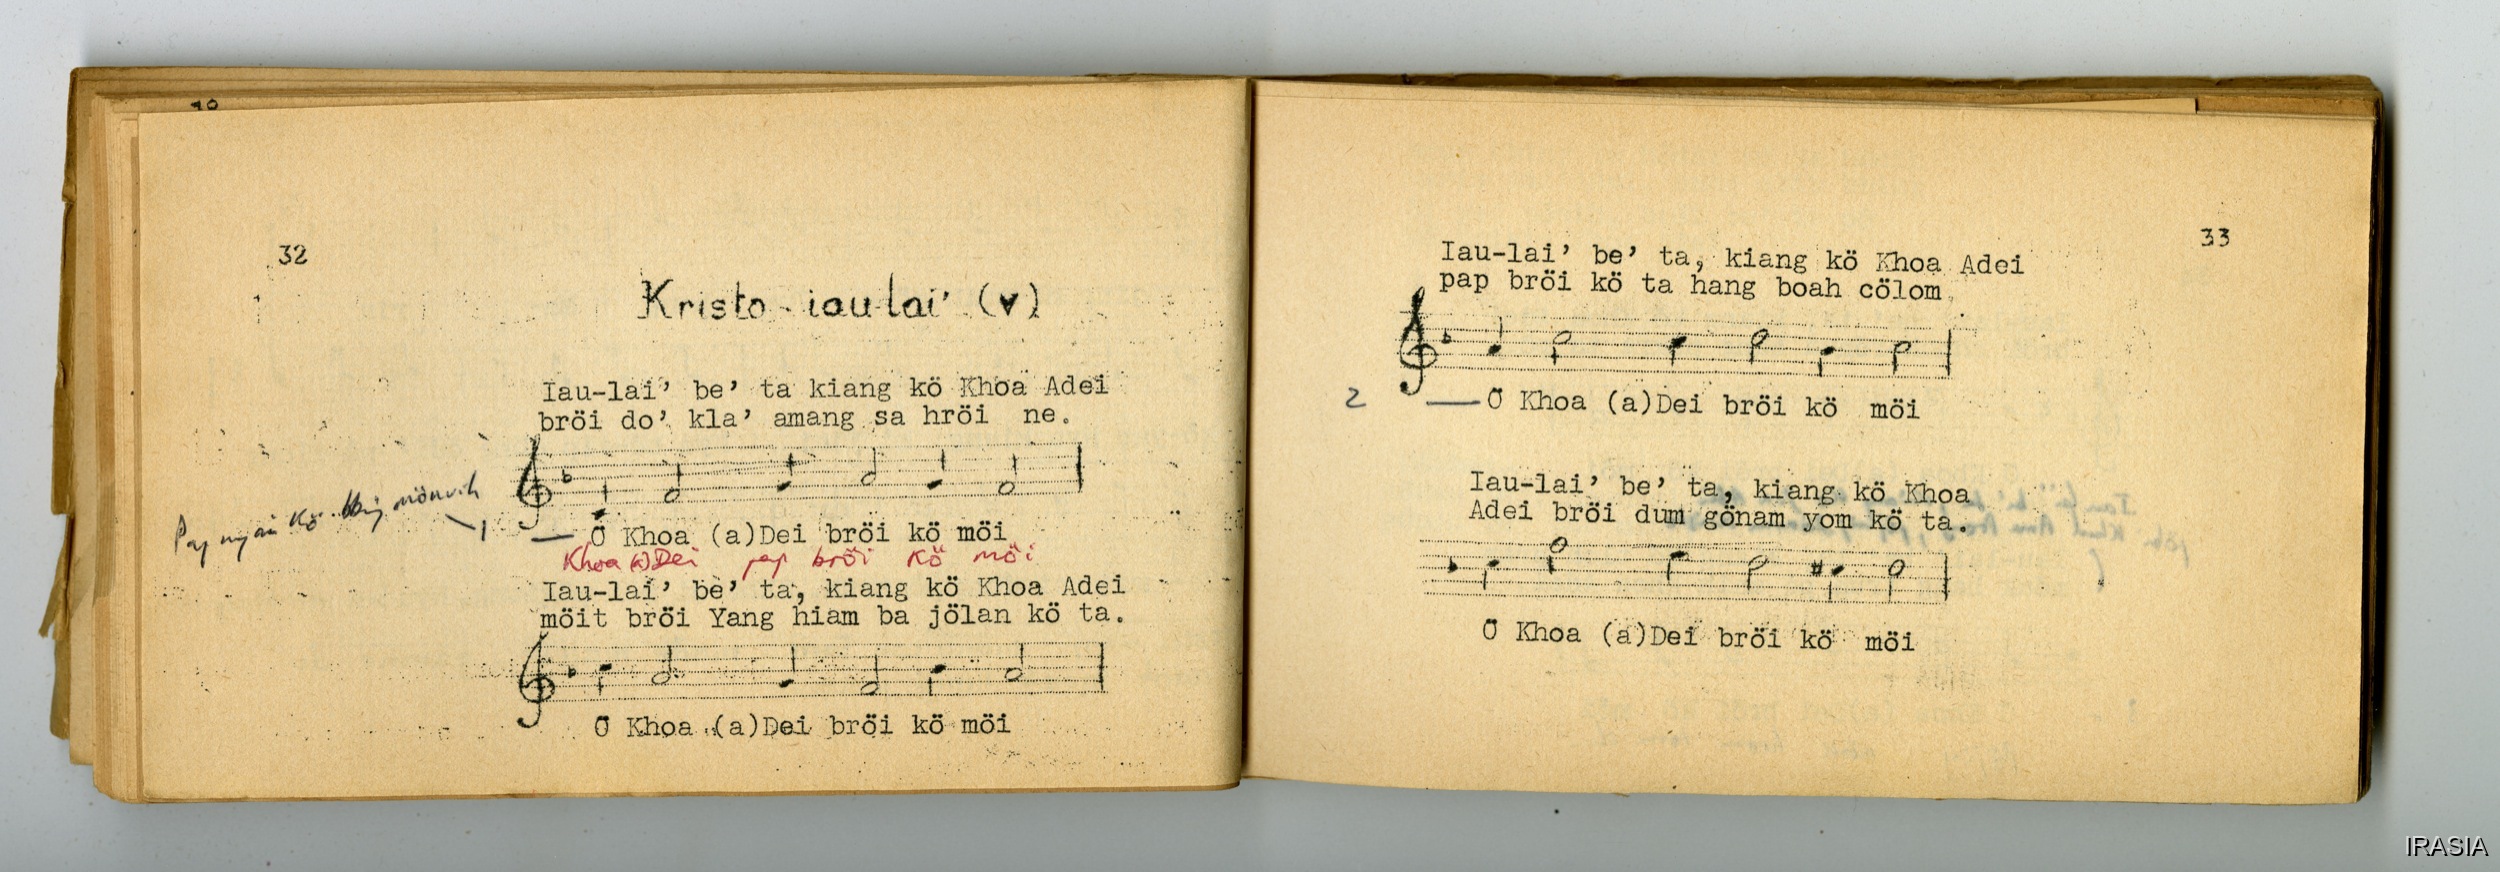 32
Kristo iau-lai' (v)
Iau-lai' be' ta kiang kö Khoa Adei
bröi do' kla' amang sa hröi ne.
1
Ö Khoa (a)Dei bröi kö möi
Khoa (a)Dei pap bröi kö möi
Iau-lai' be' ta, kiang kö Khoa Adei
möit bröi Yang hiam ba jölan kö ta.
Ö Khoa (a)Dei bröi kö möi
33
Iau-lai' be' ta, kiang kö Khoa Adei
pap bröi kö ta hang boah cölom
2
Ö Khoa (a)Dei bröi kö möi
Iau-lai' be' ta, kiang kö Khoa
Adei bröi dum gönam yom kö ta.
Ö Khoa (a)Dei bröi kö möi
IRASIA